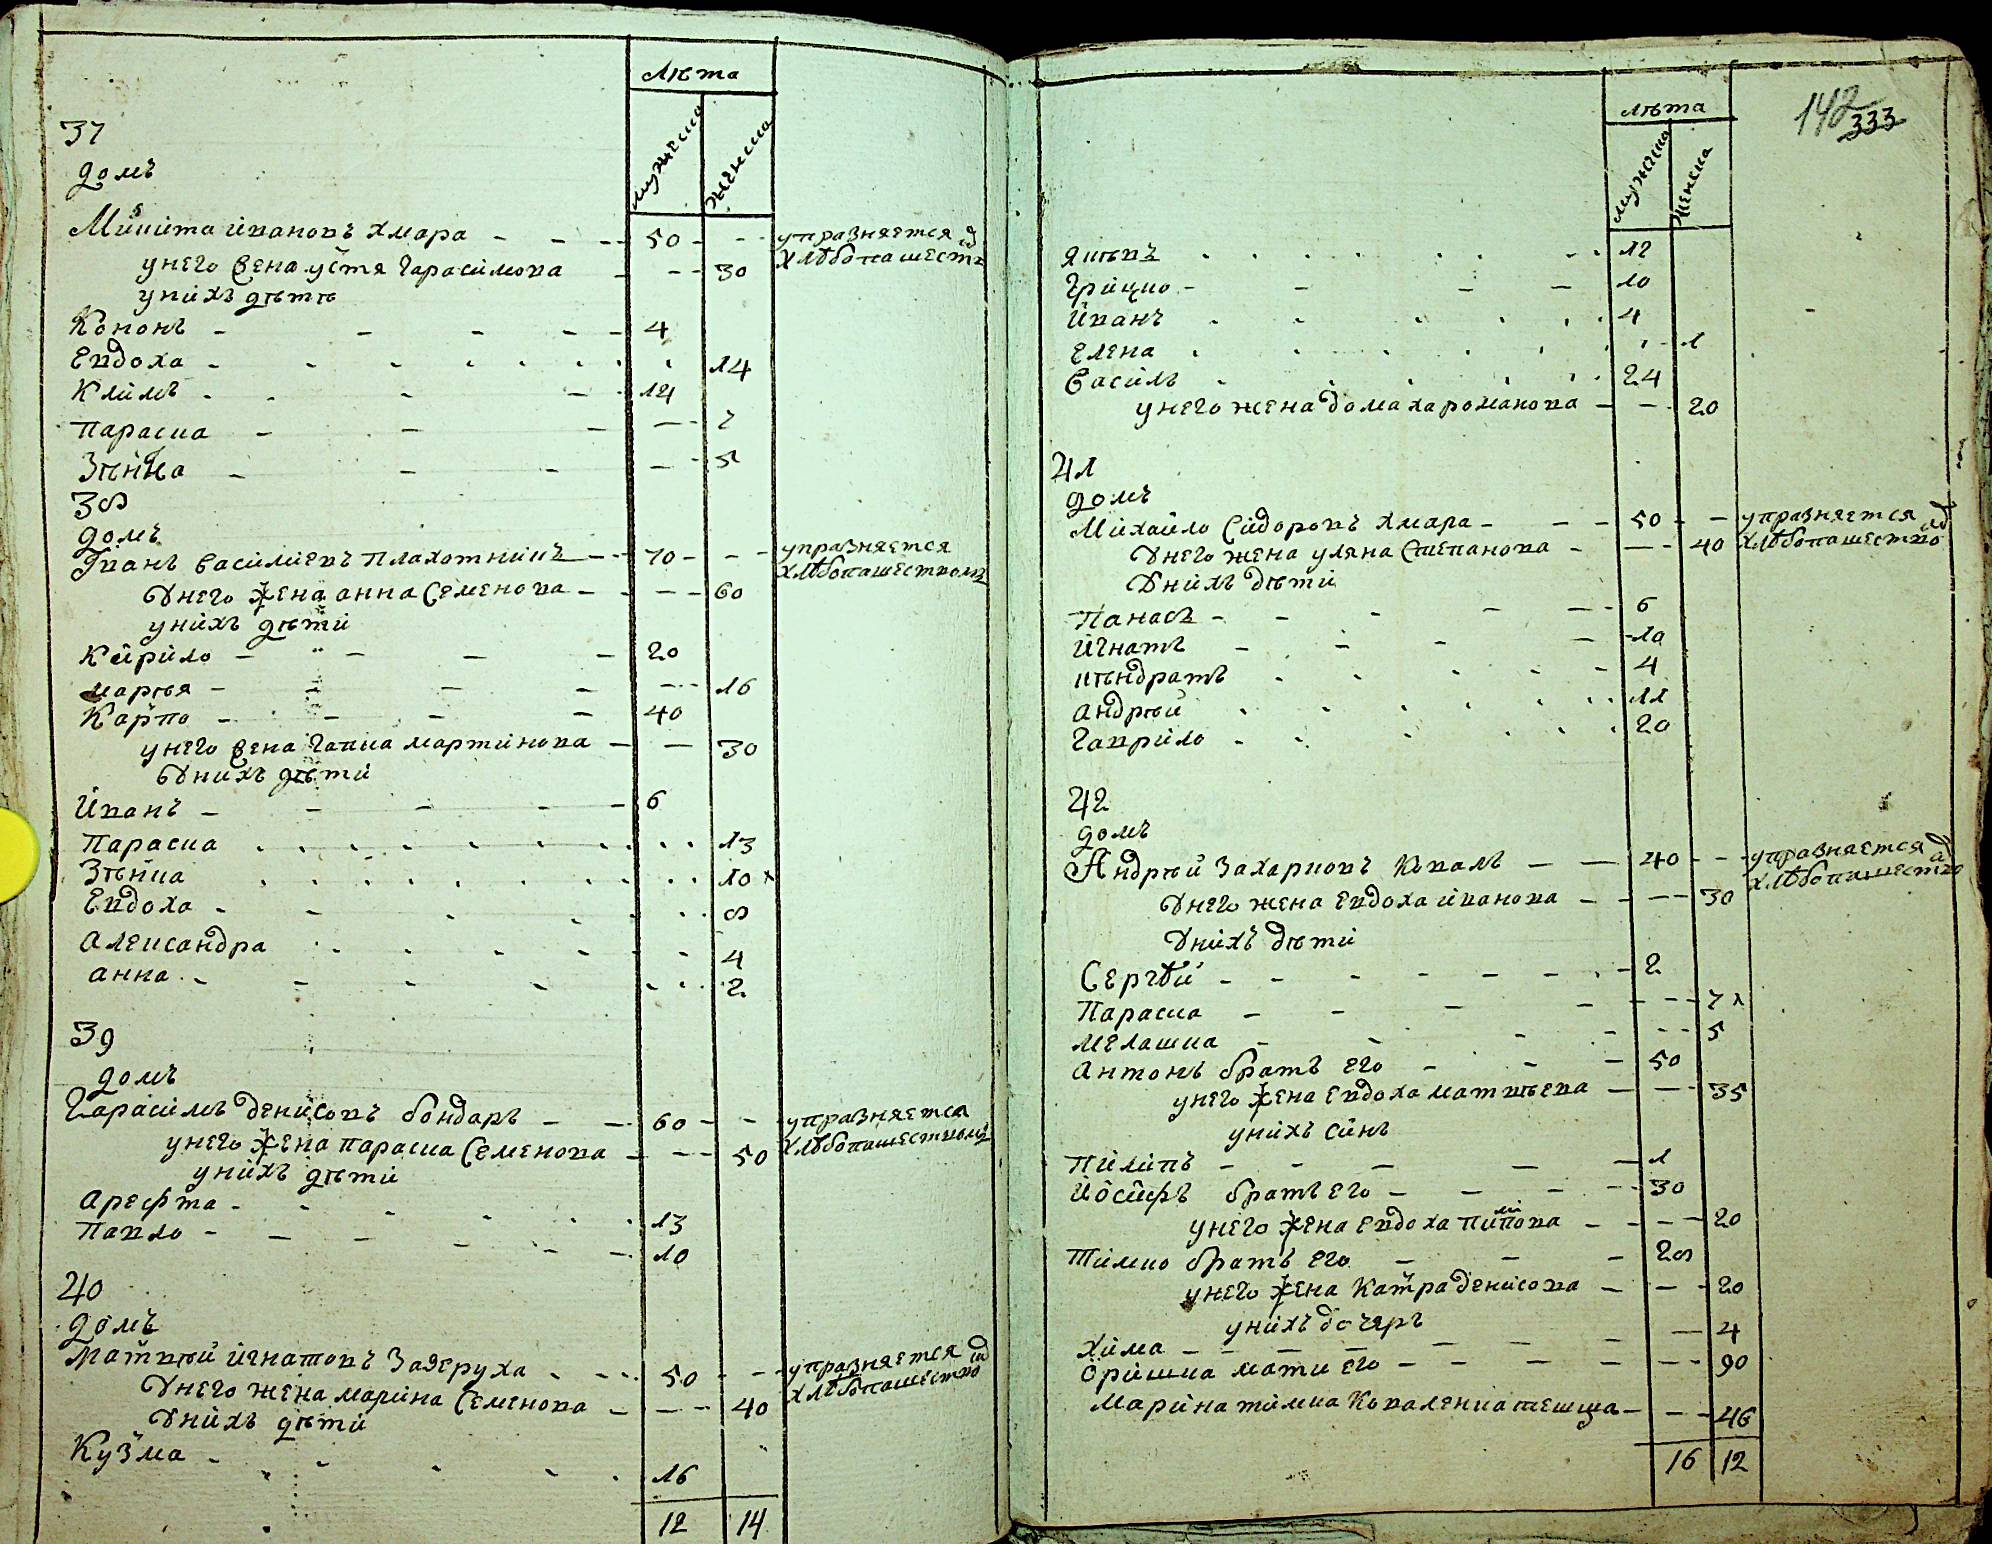 лѣта
мужеска
женска
37
домъ
Микита Ивановъ Хмара - - - 50 - - - управняется
у него жена Устя Гарасимова - - - 30 хлѣбопашеств
у нихъ дѣти
Кононъ - - - - - 4
Евдоха - - - - - 14
Климъ - - - - 14
Параска - - - - - 7
Зѣнка - - - - 5
38
домъ
Іванъ Василиевъ Плахотникъ - - 70 - - - управняется
У него жена Анна Семенова - - - - 60 хлѣбопашествомъ
у нихъ дѣти
Кирило - - - - 20
Маръя - - - - - - 16
Карпо - - - - 40
у него жена Гапка Мартинова - - 30
У нихъ дѣти
Иванъ - - - - - 6
Параска . . . . . . . . . 13
Зѣнка . . . . . . . . 10
Евдоха - - - - . . 8
Александра . . . . - - 4
Анна - - - - . . . 2
39
домъ
Гарасимъ Денисовъ Бондаръ - - 60 - - - управняется
у него жена Параска Семенова - - - 50 хлѣбопашествомъ
у нихъ дѣти
Арефта - - - - . . 13
Павло - - - - - - 10
40
домъ
Матвѣй Игнатовъ Задеруха - - - 50 - - управняется
У него жена Марина Семенова - - - 40 хлѣбопашество
У нихъ дѣти
Кузма - - - - - . 16
12 14
142
333
лѣта
мужеска
женска
Яковъ . . . . . . . . 12
Грицко - - - - 10
Иванъ . . . . . . 4
Елена . . . . . . . - 1
Василь . . . . . . 24
у него жена Домаха Романова - - - 20
41
домъ
Михайло Сидоровъ Хмара - - - 50 - - управняется
У него жена Уляна Степанова - - - 40 хлѣбопашество
У нихъ дѣти
Панасъ - - - - - - 6
Игнатъ - - - - - 10
Кѣндратъ . . . . - 4
Андрѣй . . . . . . . 11
Гаврило - . . . . 20
42
домъ
Андрѣй Захариовъ Коваль - - 40 - - управняется
У него жена Евдоха Иванова - - - - 30 хлѣбопашество
У нихъ дѣти
Сергѣй - - - - - - . - 2
Параска - - - - - - - - 7
Мелашка - - - - - - - 5
Антонъ братъ его - - - 50
у него жена Евдоха Матвѣева - - - 35
у нихъ синъ
Пилипъ - - - - - 1
Йосифъ братъ его - - - - 30
у него жена Евдоха Пилипова - - - - 20
Тимко братъ его - - - 28
у него жена Катра Денисова - - - 20
у нихъ дочеръ
Хима - - - - - - - - 4
Оришка мати его - - - - - - 90
Марина Тимка Коваленка тешща - - - 46
16 12